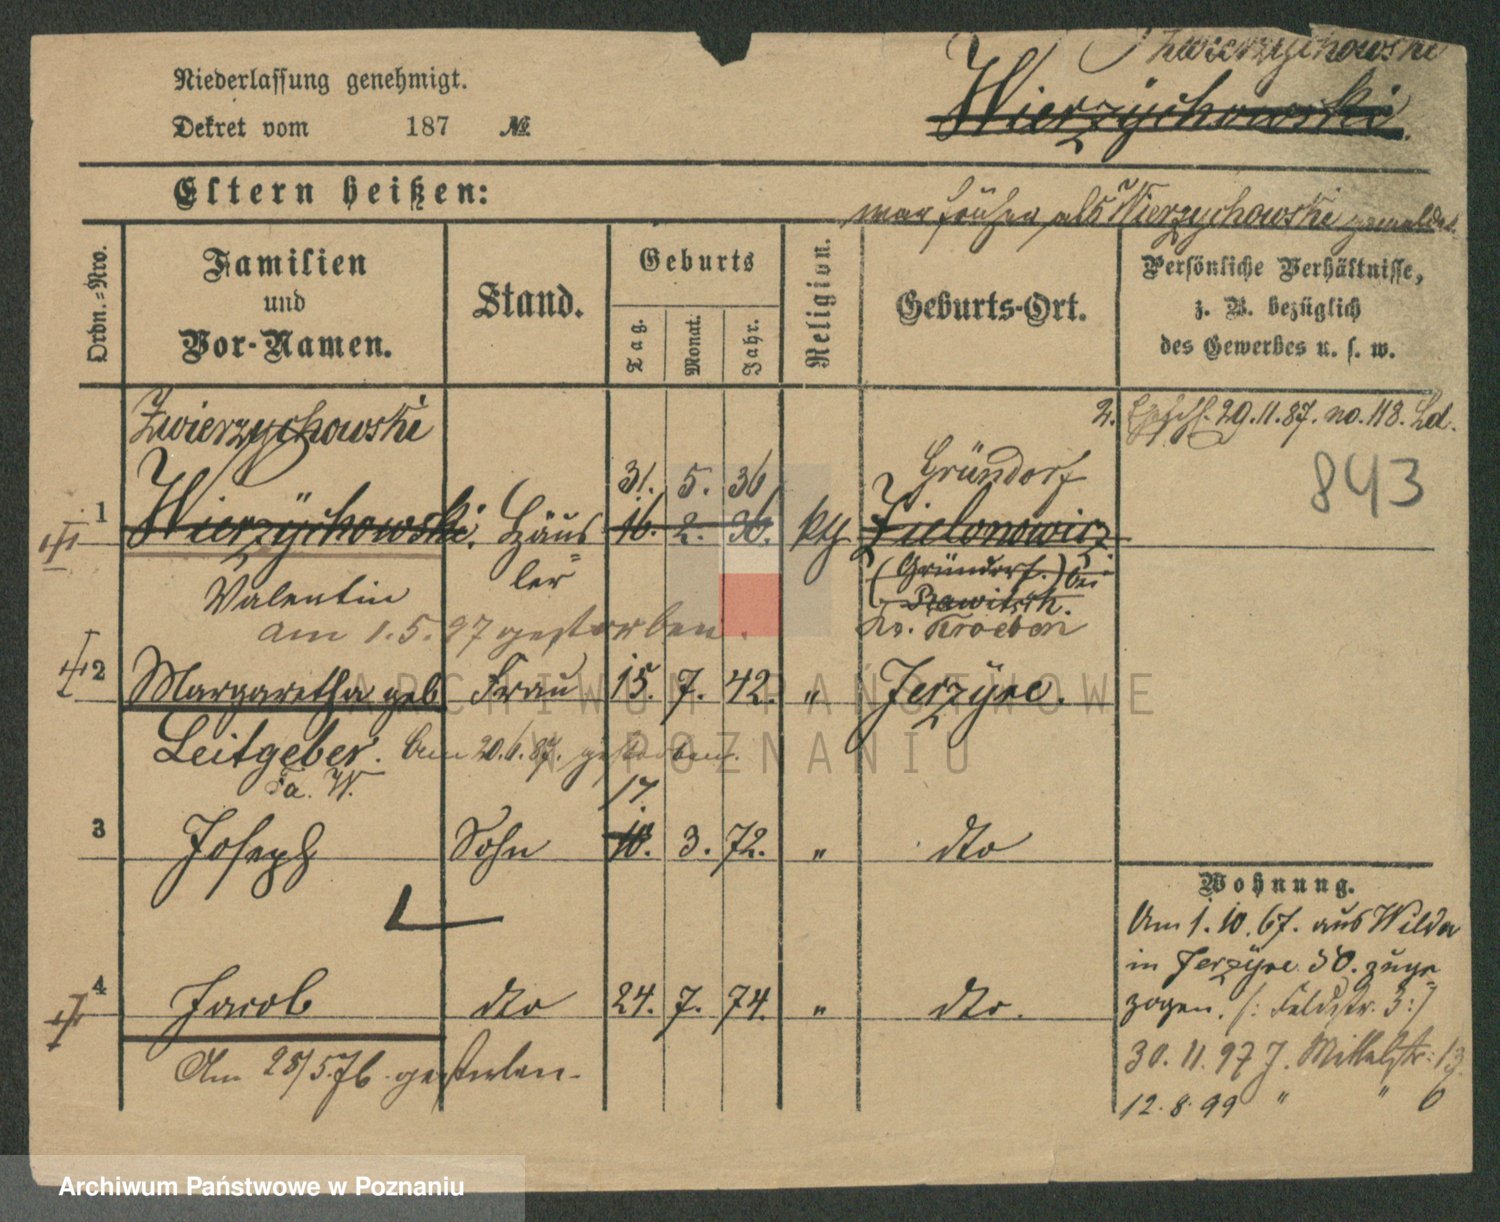 Zwierzychowski
Niederlassung genehmigt.
Wierzychowski.
Dekret vom 187 №
Eltern heißen:
war früher als Wierzychowski gemeldet
Ordn.-Nro.
Familien
und
Vor-Namen.
Stand.
Geburts
Tag.
Monat.
Jahr.
Religion.
Geburts-Ort.
Persönliche Verhältnisse,
z. B. bezüglich
des Gewerbes u. s. w.
Zwierzychowski
2. 29.11.87. no. 118.
843
31. 5. 36 Gründorf
1 Wierzychowski. Häus 16. 2. 36. kth Zielonowicz
ler
(Gründorf.) bei
Rawitsch.
Valentin
Kr. Kroeben
am 1.5.97 gestorben.
2 Margaretha geb. Frau 15. 7. 42. " Jerzyce.
Leitgeber. Am 20.6.87. gestorben.
Fa. W.
17.
3 Joseph Sohn 10. 3. 72. " dto
4 Jacob dto 24. 7. 74. " dto.
Am 28/5.76. gestorben.
Wohnung.
Am 1.10.67. aus Wilda
in Jerzyce 30. zuge
zogen. (: Feldstr. 3 :)
30.11.97 J. Mittelstr. 13
12.8.99 " " 6
ARCHIWUM PAŃSTWOWE
W POZNANIU
Archiwum Państwowe w Poznaniu